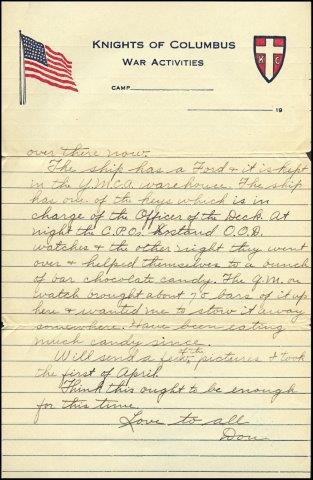 KNIGHTS OF COLUMBUS
WAR ACTIVITIES
CAMP
19
K C
over there now.
The ship has a Ford & it is kept
in the Y.M.C.A. warehouse. The ship
has one of the keys which is in
charge of the Officer of the Deck. At
night the C.P.O. stand O.O.D.
watches & the other night they went
over & helped themselves to a bunch
of bar chocolate candy. The Q.M. on
watch brought about 75 bars of it up
here & wanted me to stow it away
somewhere. Have been eating
much candy since.
Will send a few of the pictures I took
the first of April.
Think this ought to be enough
for this time.
Love to all
Don